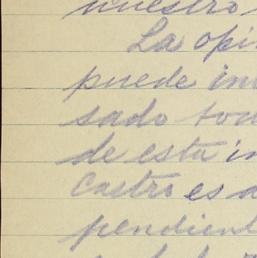 nuestro
La opi
puede in
sado tou
de esta i
Castro es a
pendient